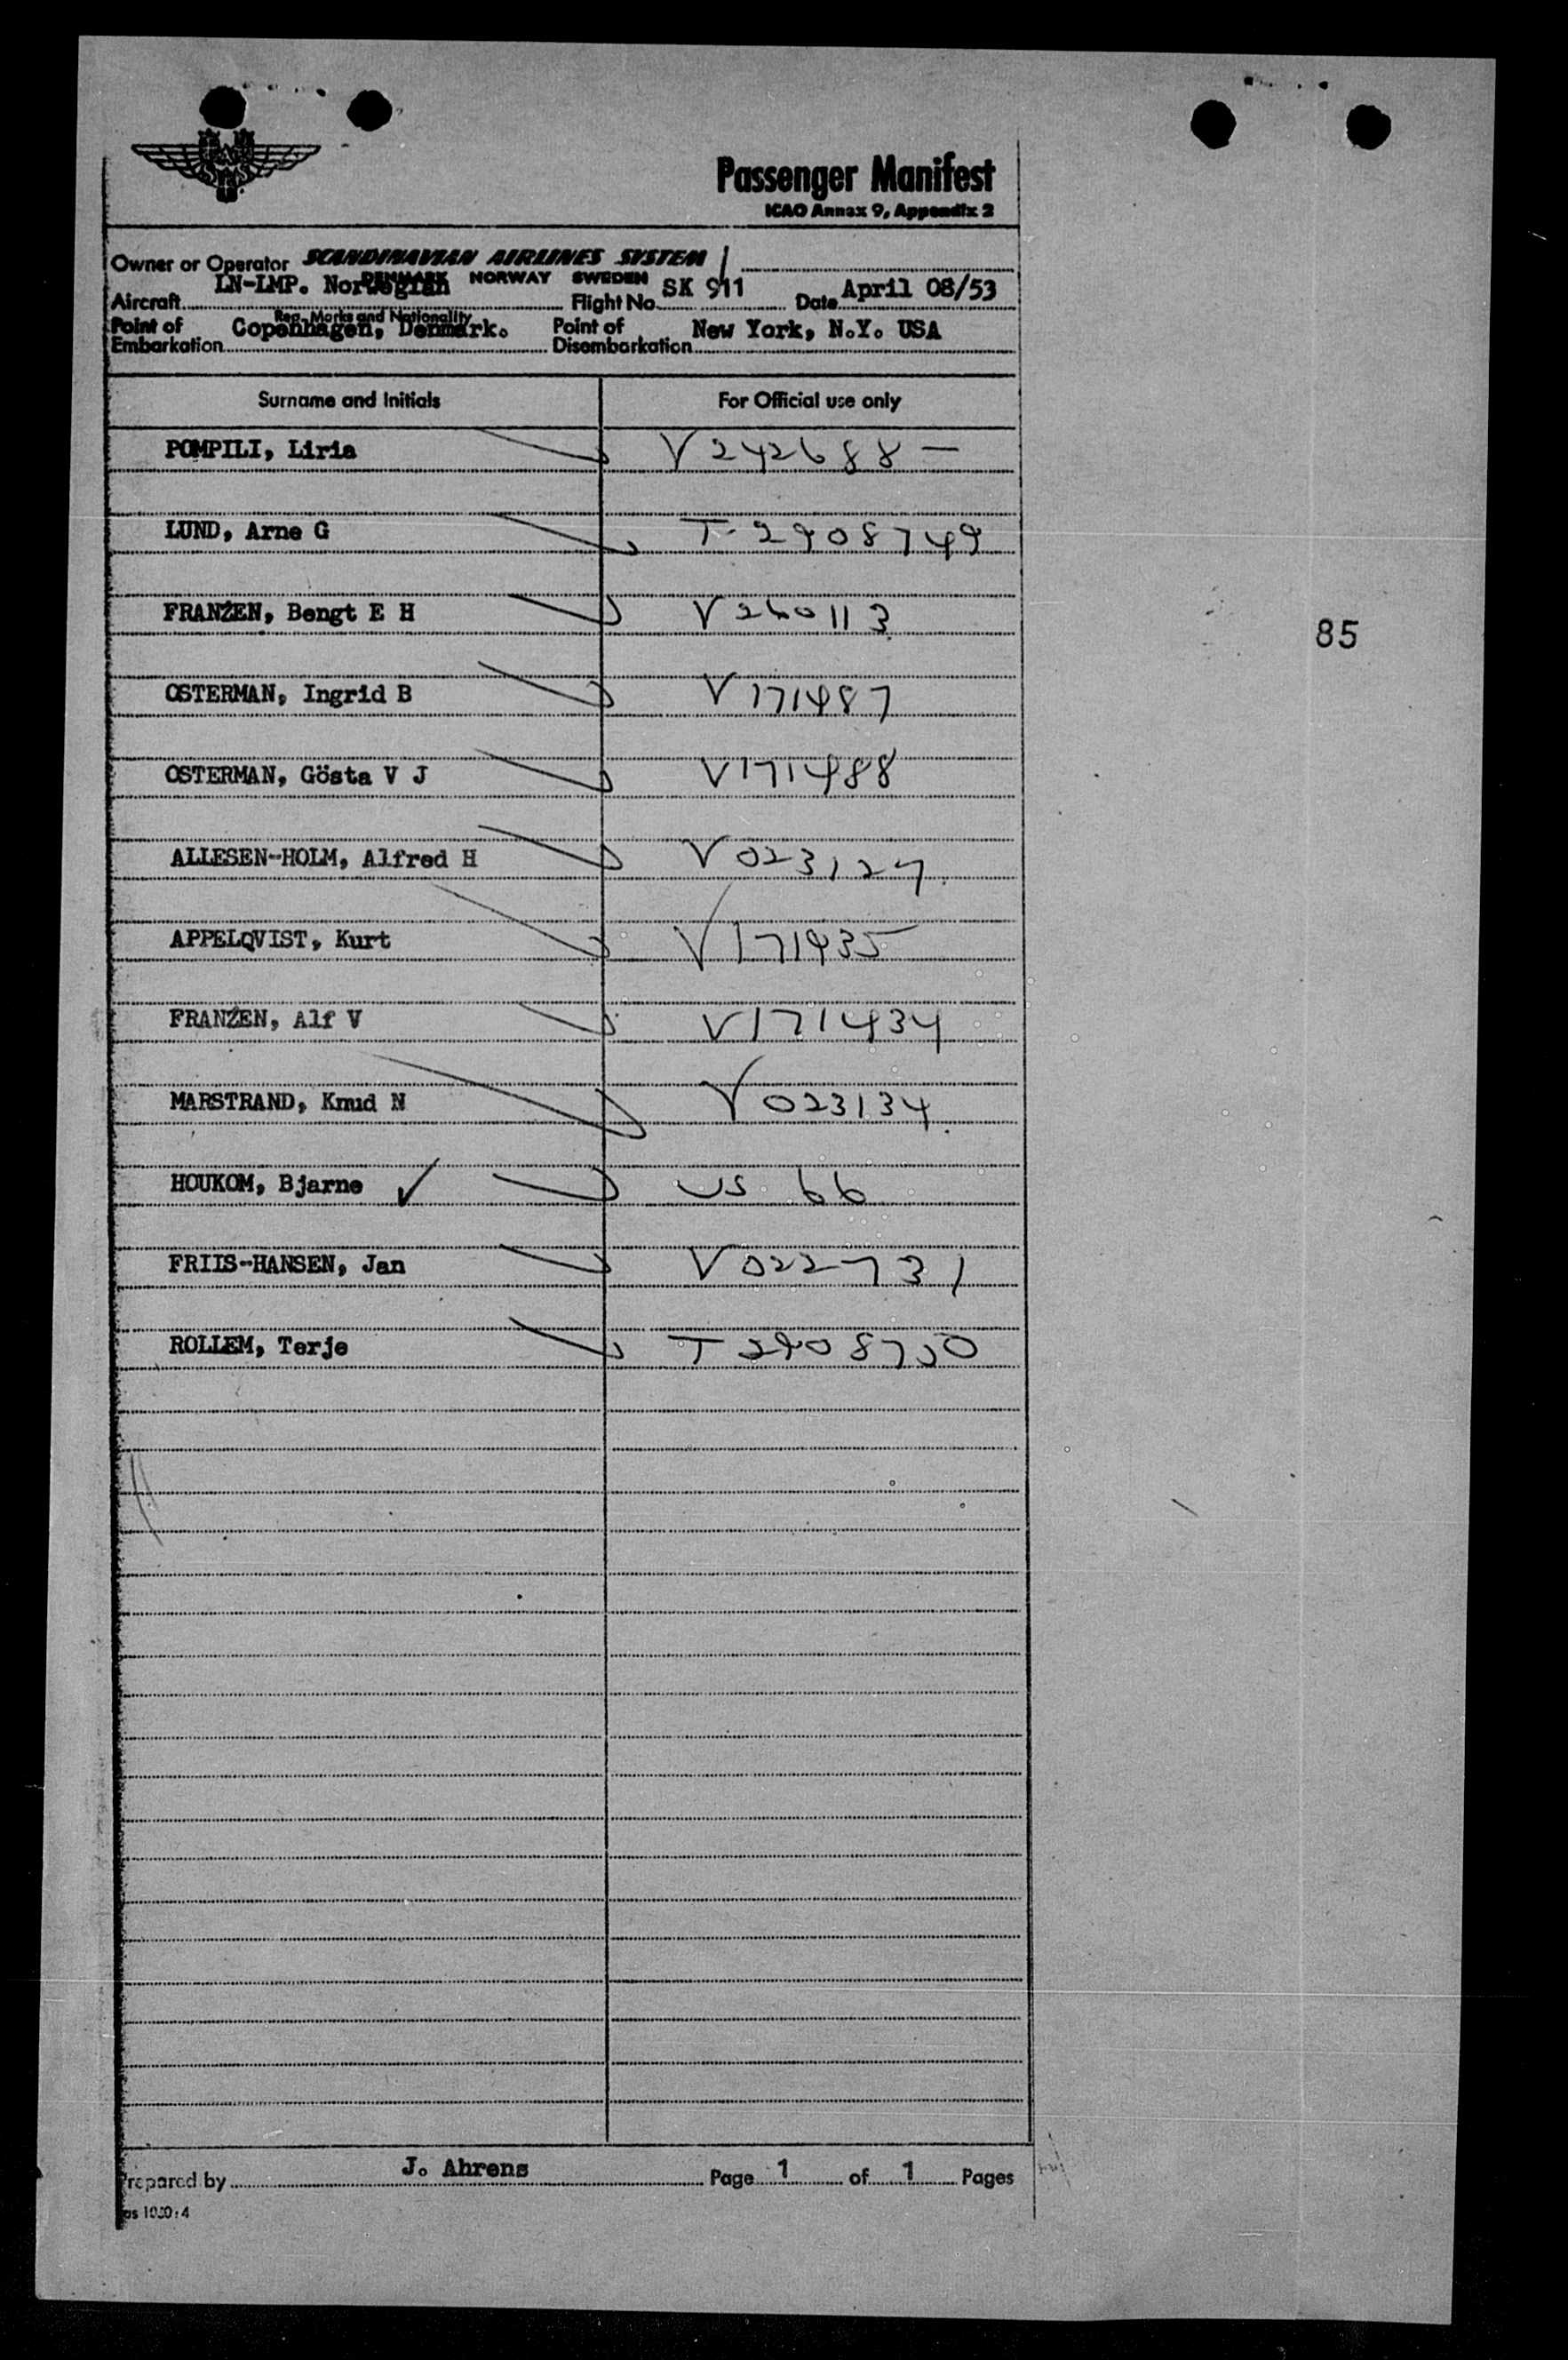 Passenger Manifest
ICAO Annex 9, Appendix 2
Owner or Operator SCANDINAVIAN AIRLINES SYSTEM
DENMARK NORWAY SWEDEN
Aircraft LN-LMP. Norwegian Flight No. SK 911 Date April 08/53
Reg. Marks and Nationality
Point of Embarkation Copenhagen, Denmark. Point of Disembarkation New York, N.Y. USA
Surname and Initials For Official use only
POMPILI, Liria V 242688 —
LUND, Arne G T-2908749
FRANŹEN, Bengt E H V 260113
85
OSTERMAN, Ingrid B V 171487
OSTERMAN, Gösta V J V171488
ALLESEN-HOLM, Alfred H V 023127
APPELQVIST, Kurt V171435
FRANŹEN, Alf V V171434
MARSTRAND, Knud N V 023134
HOUKOM, Bjarne ✓ US 66
FRIIS-HANSEN, Jan V 022731
ROLLEM, Terje T 2908750
Prepared by J. Ahrens Page 1 of 1 Pages